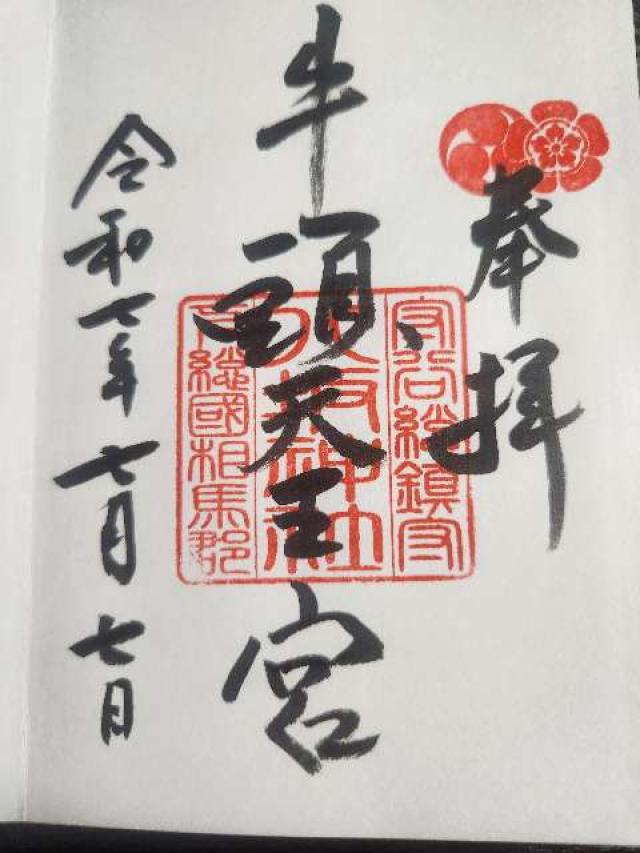 奉拝
守谷総鎮守
牛頭天王宮
八坂神社
下総國相馬郡
令和七年七月七日